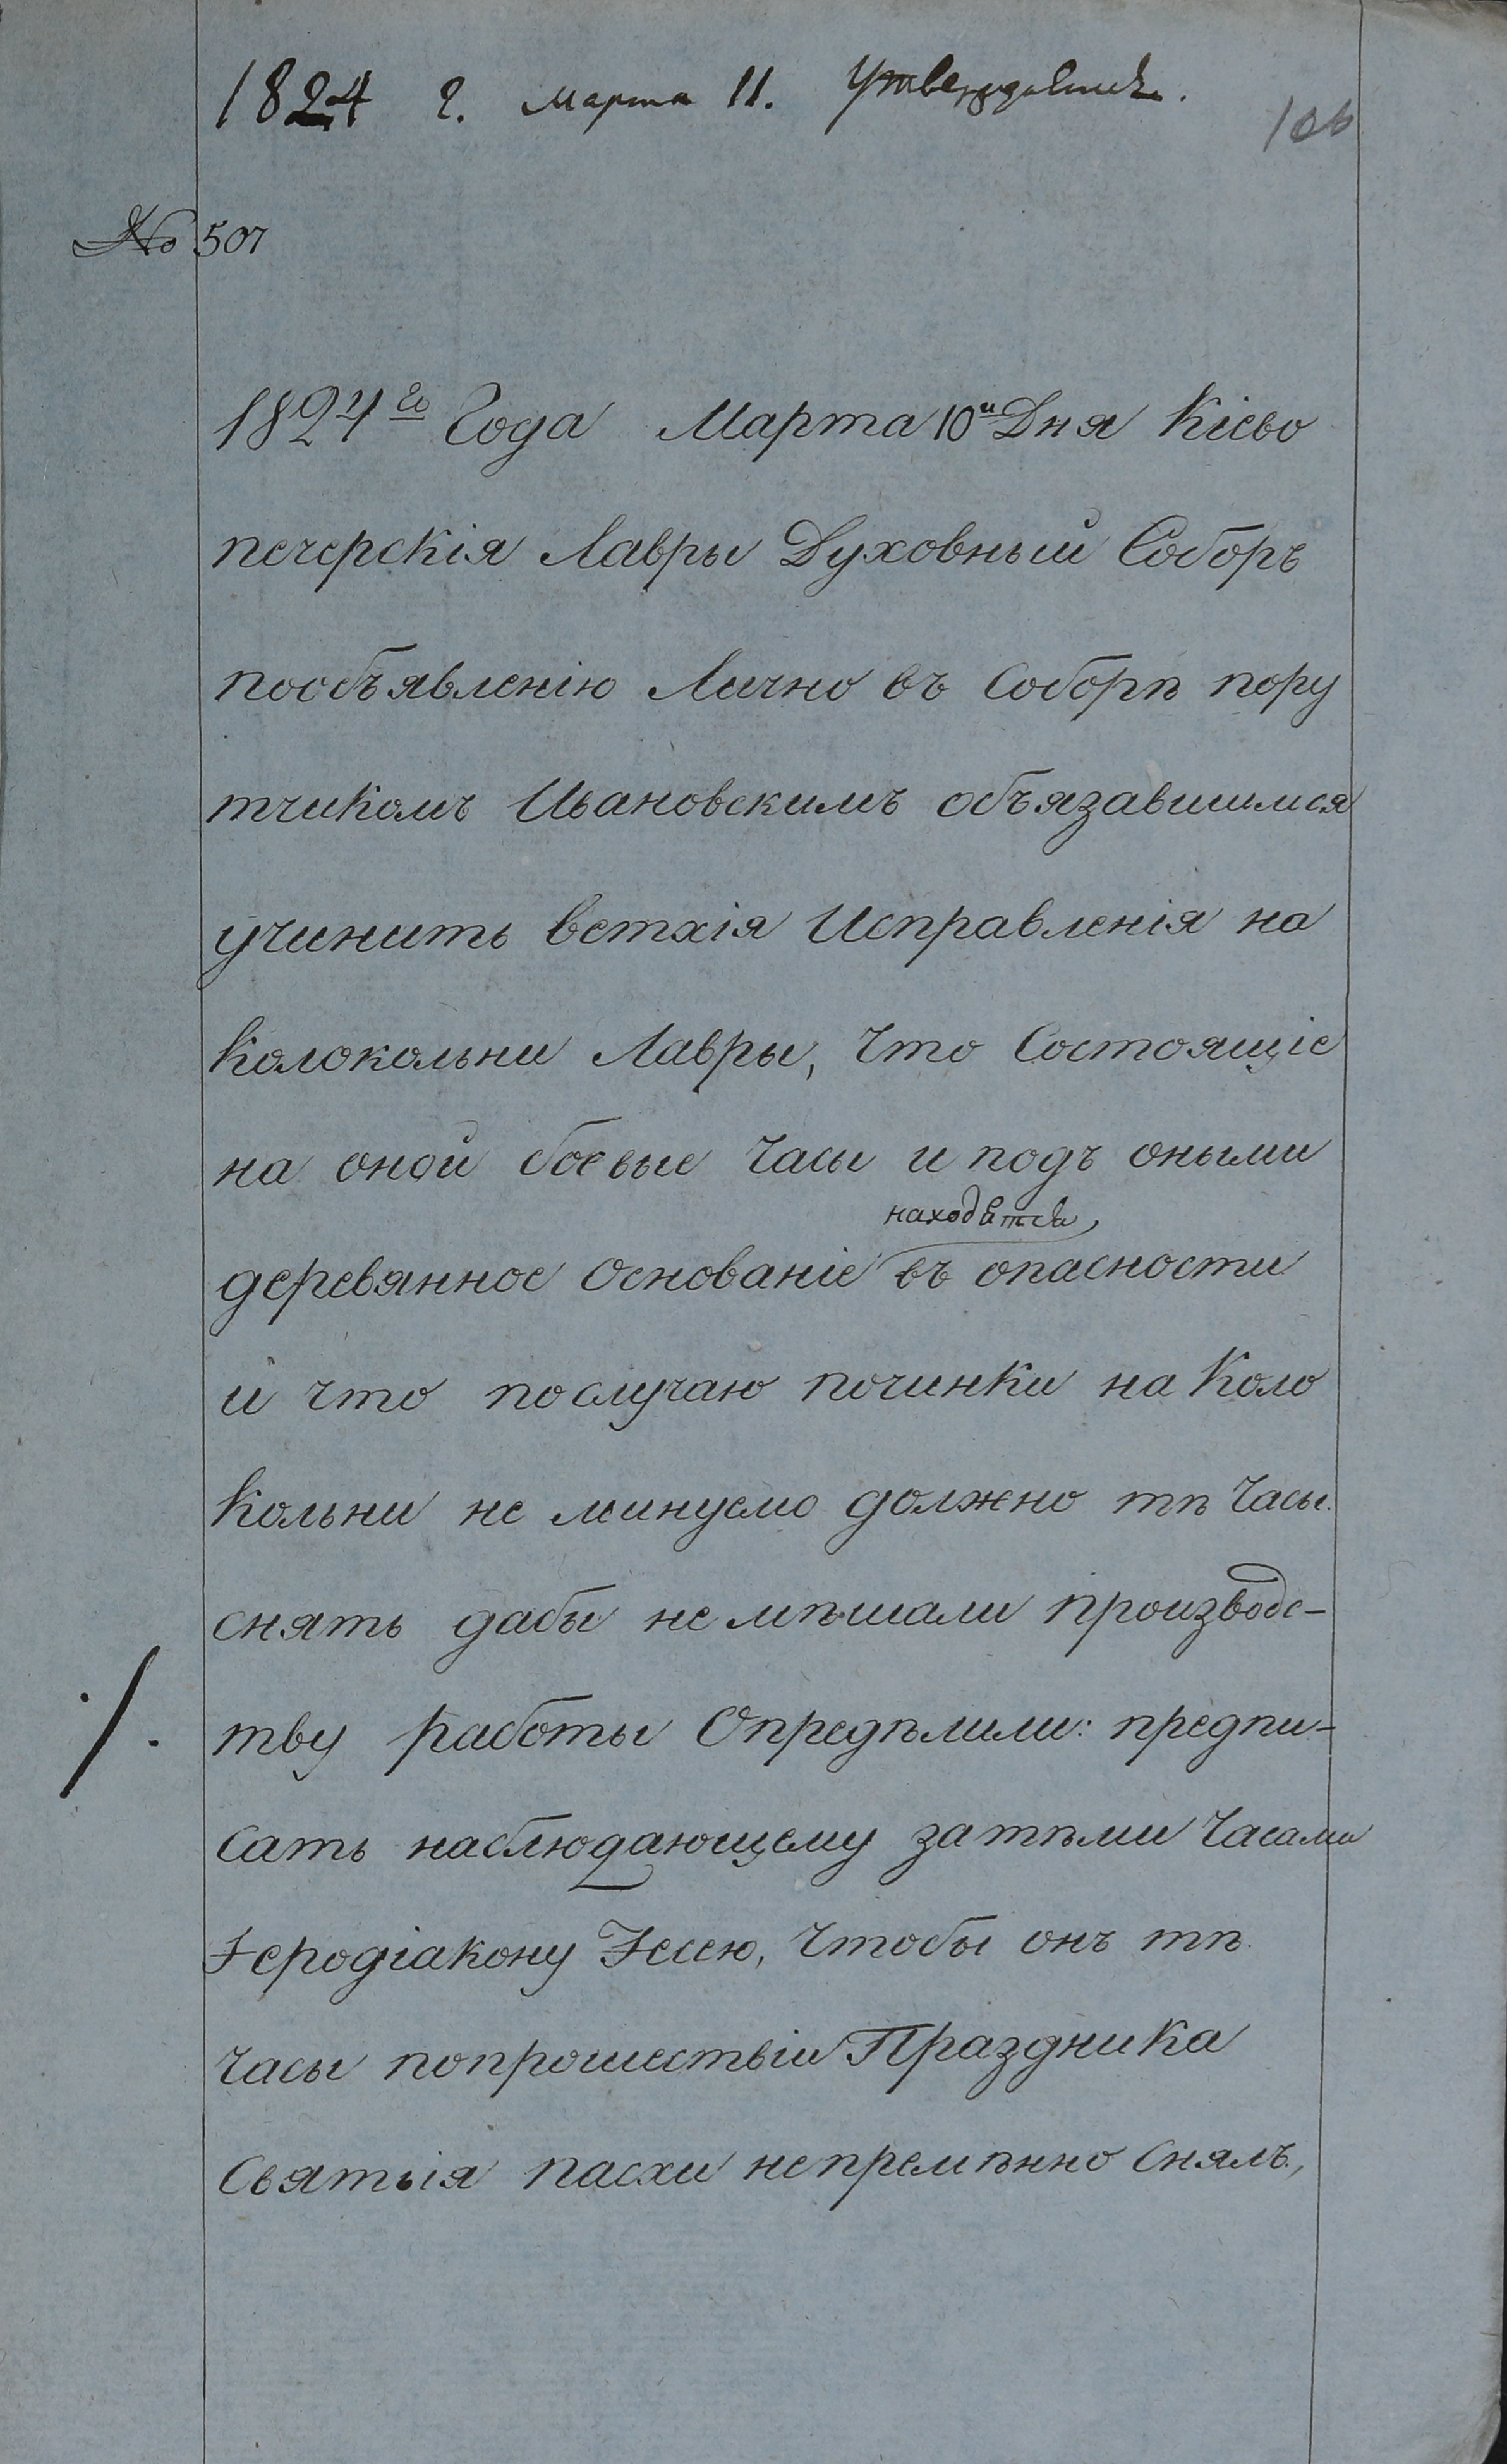 1824 г. Марта 11. Утверждается.
106
№ 507
1824го Года Марта 10и Дня Кіево
печерскія Лавры Духовный Соборъ
пообъявленію Лично въ Соборѣ пору
тчикомъ Ивановскимъ объязавшимся
учинить ветхія Исправленія на
Колокольни Лавры, Что Состоящіе
на оной боевые Часы и подъ оными
находятся
деревянное Основаніе въ опасности
и что послучаю починки на Коло
Кольни не минуемо должно тѣ Часы
снять дабы не мѣшали производс-
тву работы Опредѣлили: предпи-
сать наблюдающему затѣми Часами
Іеродіакону Іессею, Чтобы онъ тѣ
Часы попрошествіи Праздника
Святыя пасхи непремѣнно Снялъ,